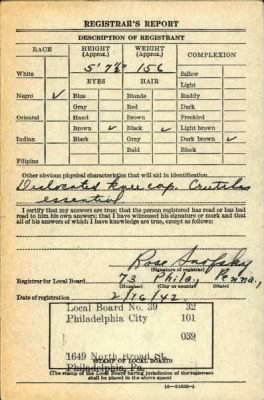 REGISTRAR'S REPORT
DESCRIPTION OF REGISTRANT
RACE HEIGHT (Approx.) WEIGHT (Approx.) COMPLEXION
5' 7½" 156
White Sallow
EYES HAIR Light
Negro ✓ Blue Blonde Ruddy
Gray Red Dark
Oriental Hazel Brown Freckled
Brown ✓ Black ✓ Light brown
Indian Black Gray Dark brown ✓
Bald Black
Filipino
Other obvious physical characteristics that will aid in identification
Dislocated knee cap. Crutches
essential
I certify that my answers are true; that the person registered has read or has had
read to him his own answers; that I have witnessed his signature or mark and that
all of his answers of which I have knowledge are true, except as follows:
Rose
(Signature of registrar)
Registrar for Local Board 73 Phila, Penna,
(Number) (City or county) (State)
Date of registration 2/16/42.
Local Board No. 39 32
Philadelphia City 101
039
1649 North Broad St.
Philadelphia, Pa.
(STAMP OF LOCAL BOARD)
(The stamp of the Local Board having jurisdiction of the registrant
shall be placed in the above space)